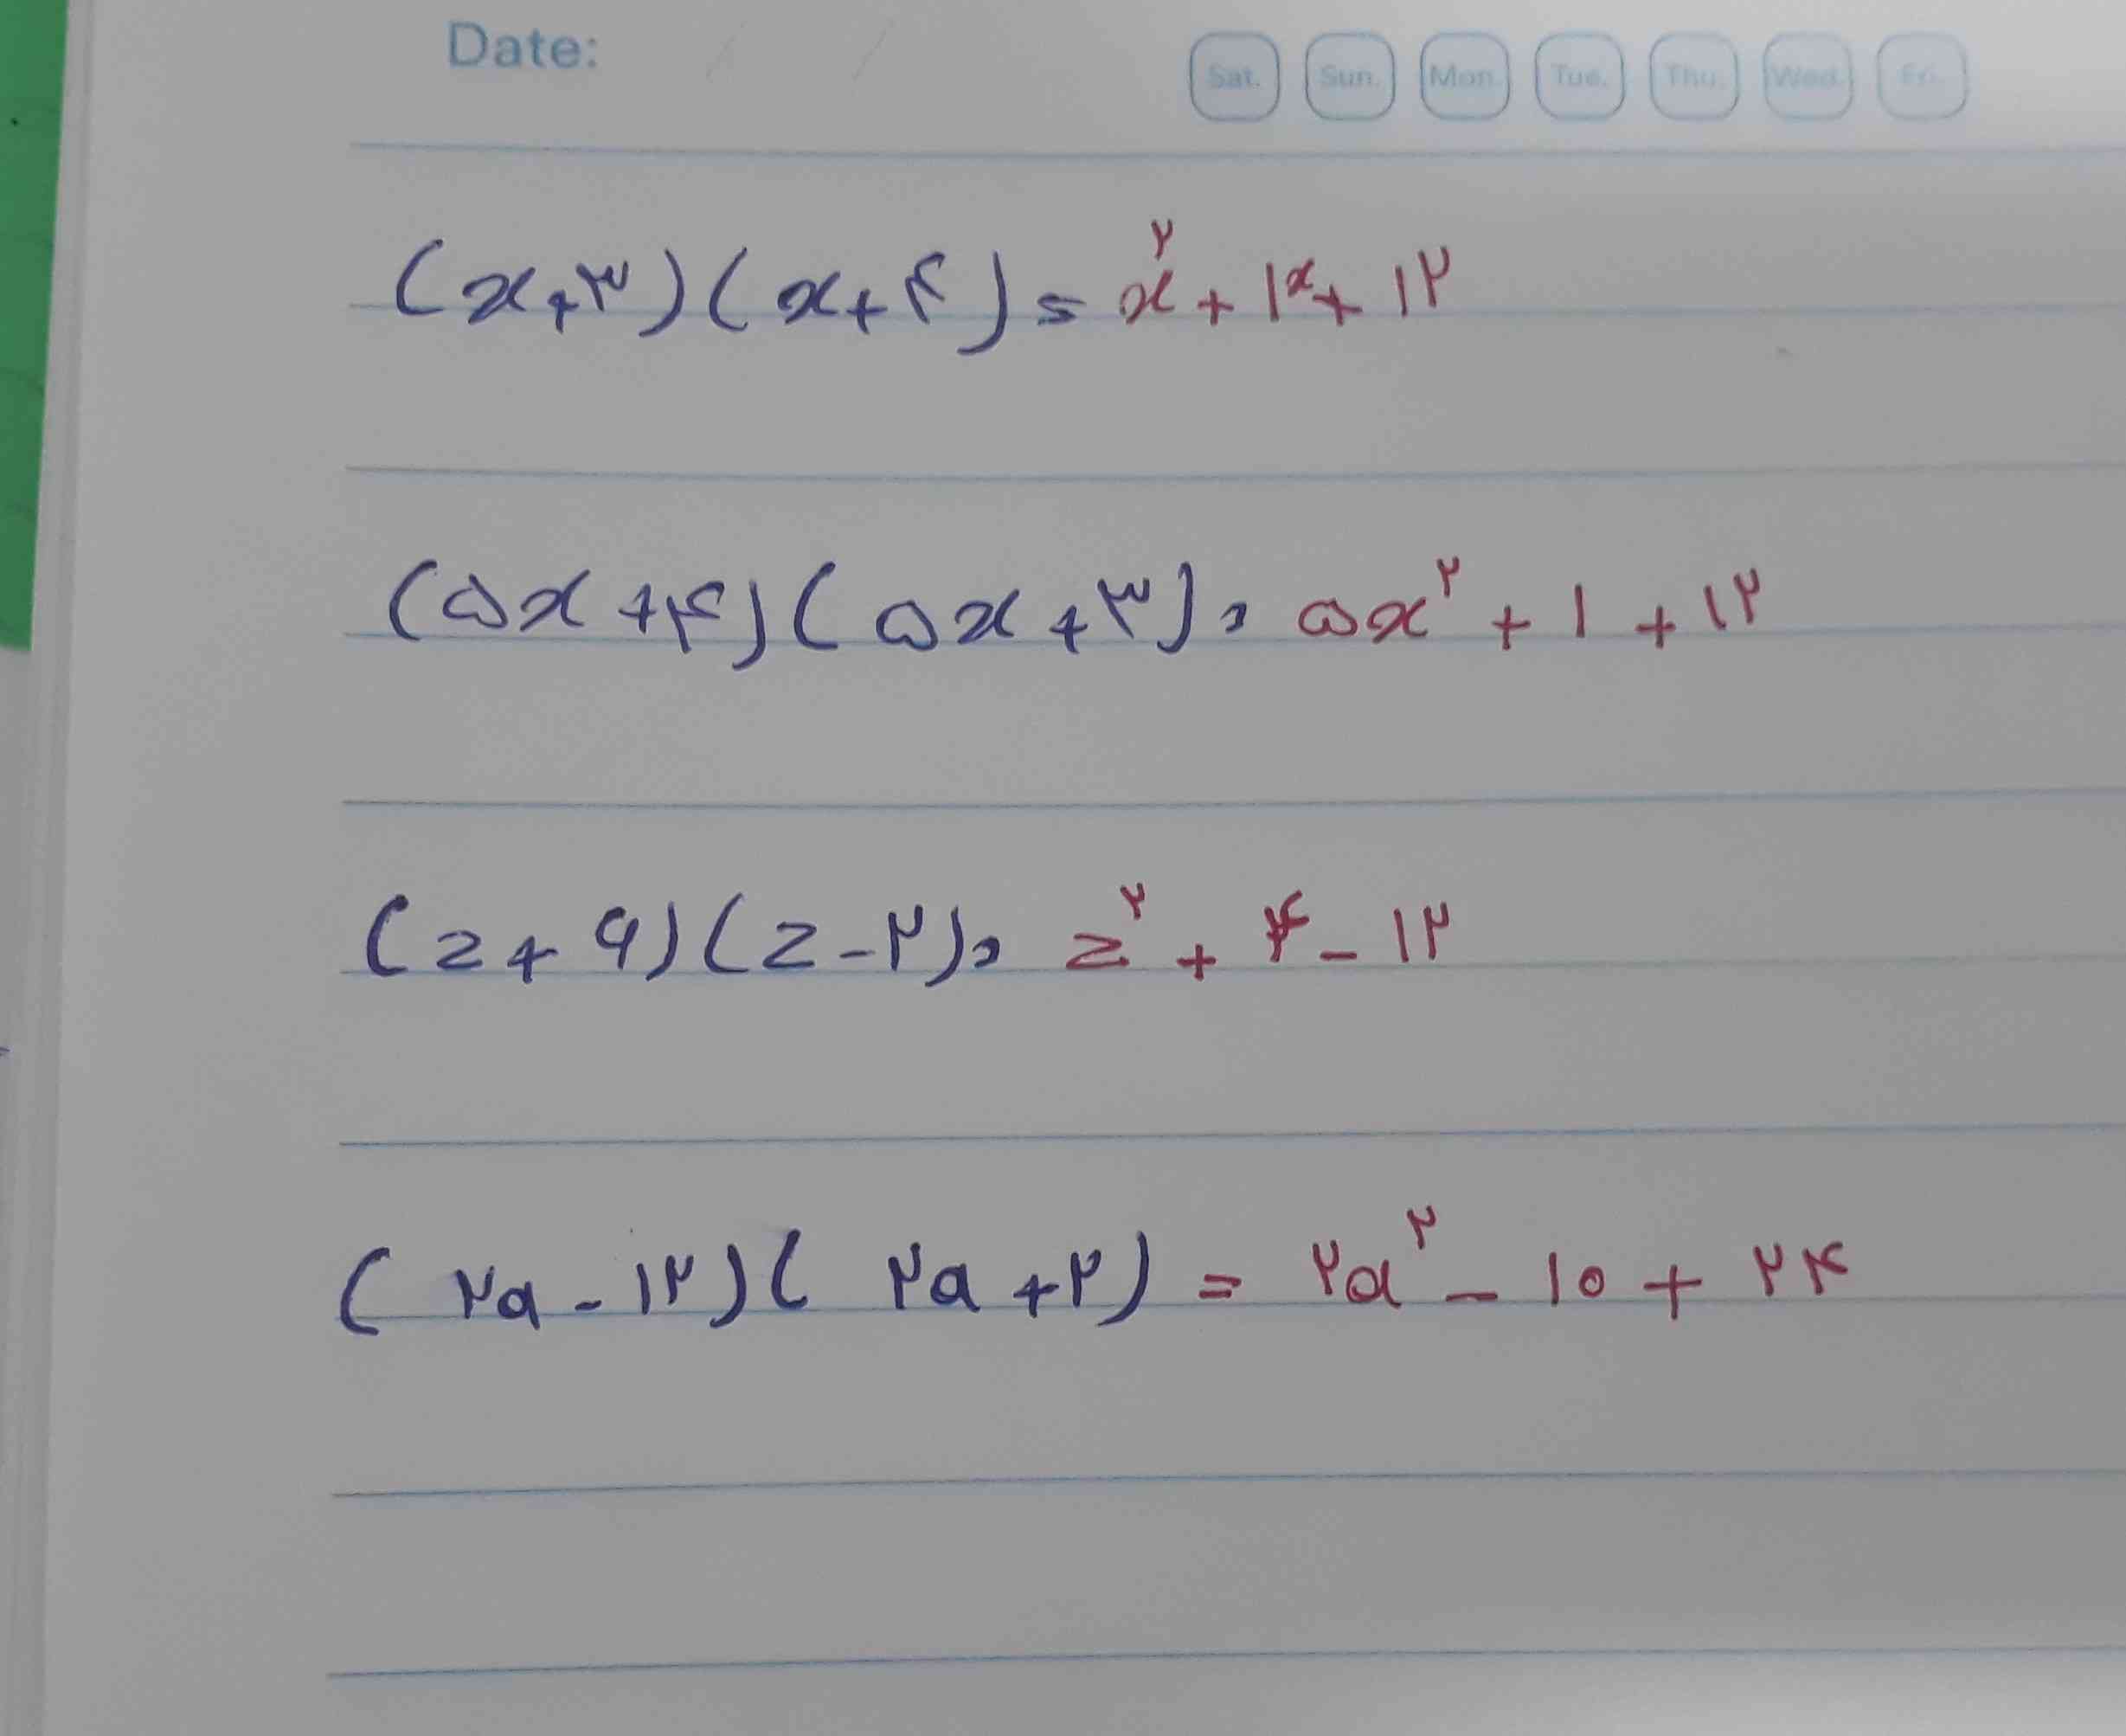 Date:
Sat. Sun. Mon. Tue. Thu. Wed. Fri.
(x+۳)(x+۴)= x^۲ + ۱x + ۱۲
(۵x+۴)(۵x+۳)= ۵x^۲ + ۱ + ۱۲
(z+۶)(z-۲)= z^۲ + ۴ - ۱۲
(۲a-۱۲)(۲a+۲) = ۲a^۲ - ۱۰ + ۲۴